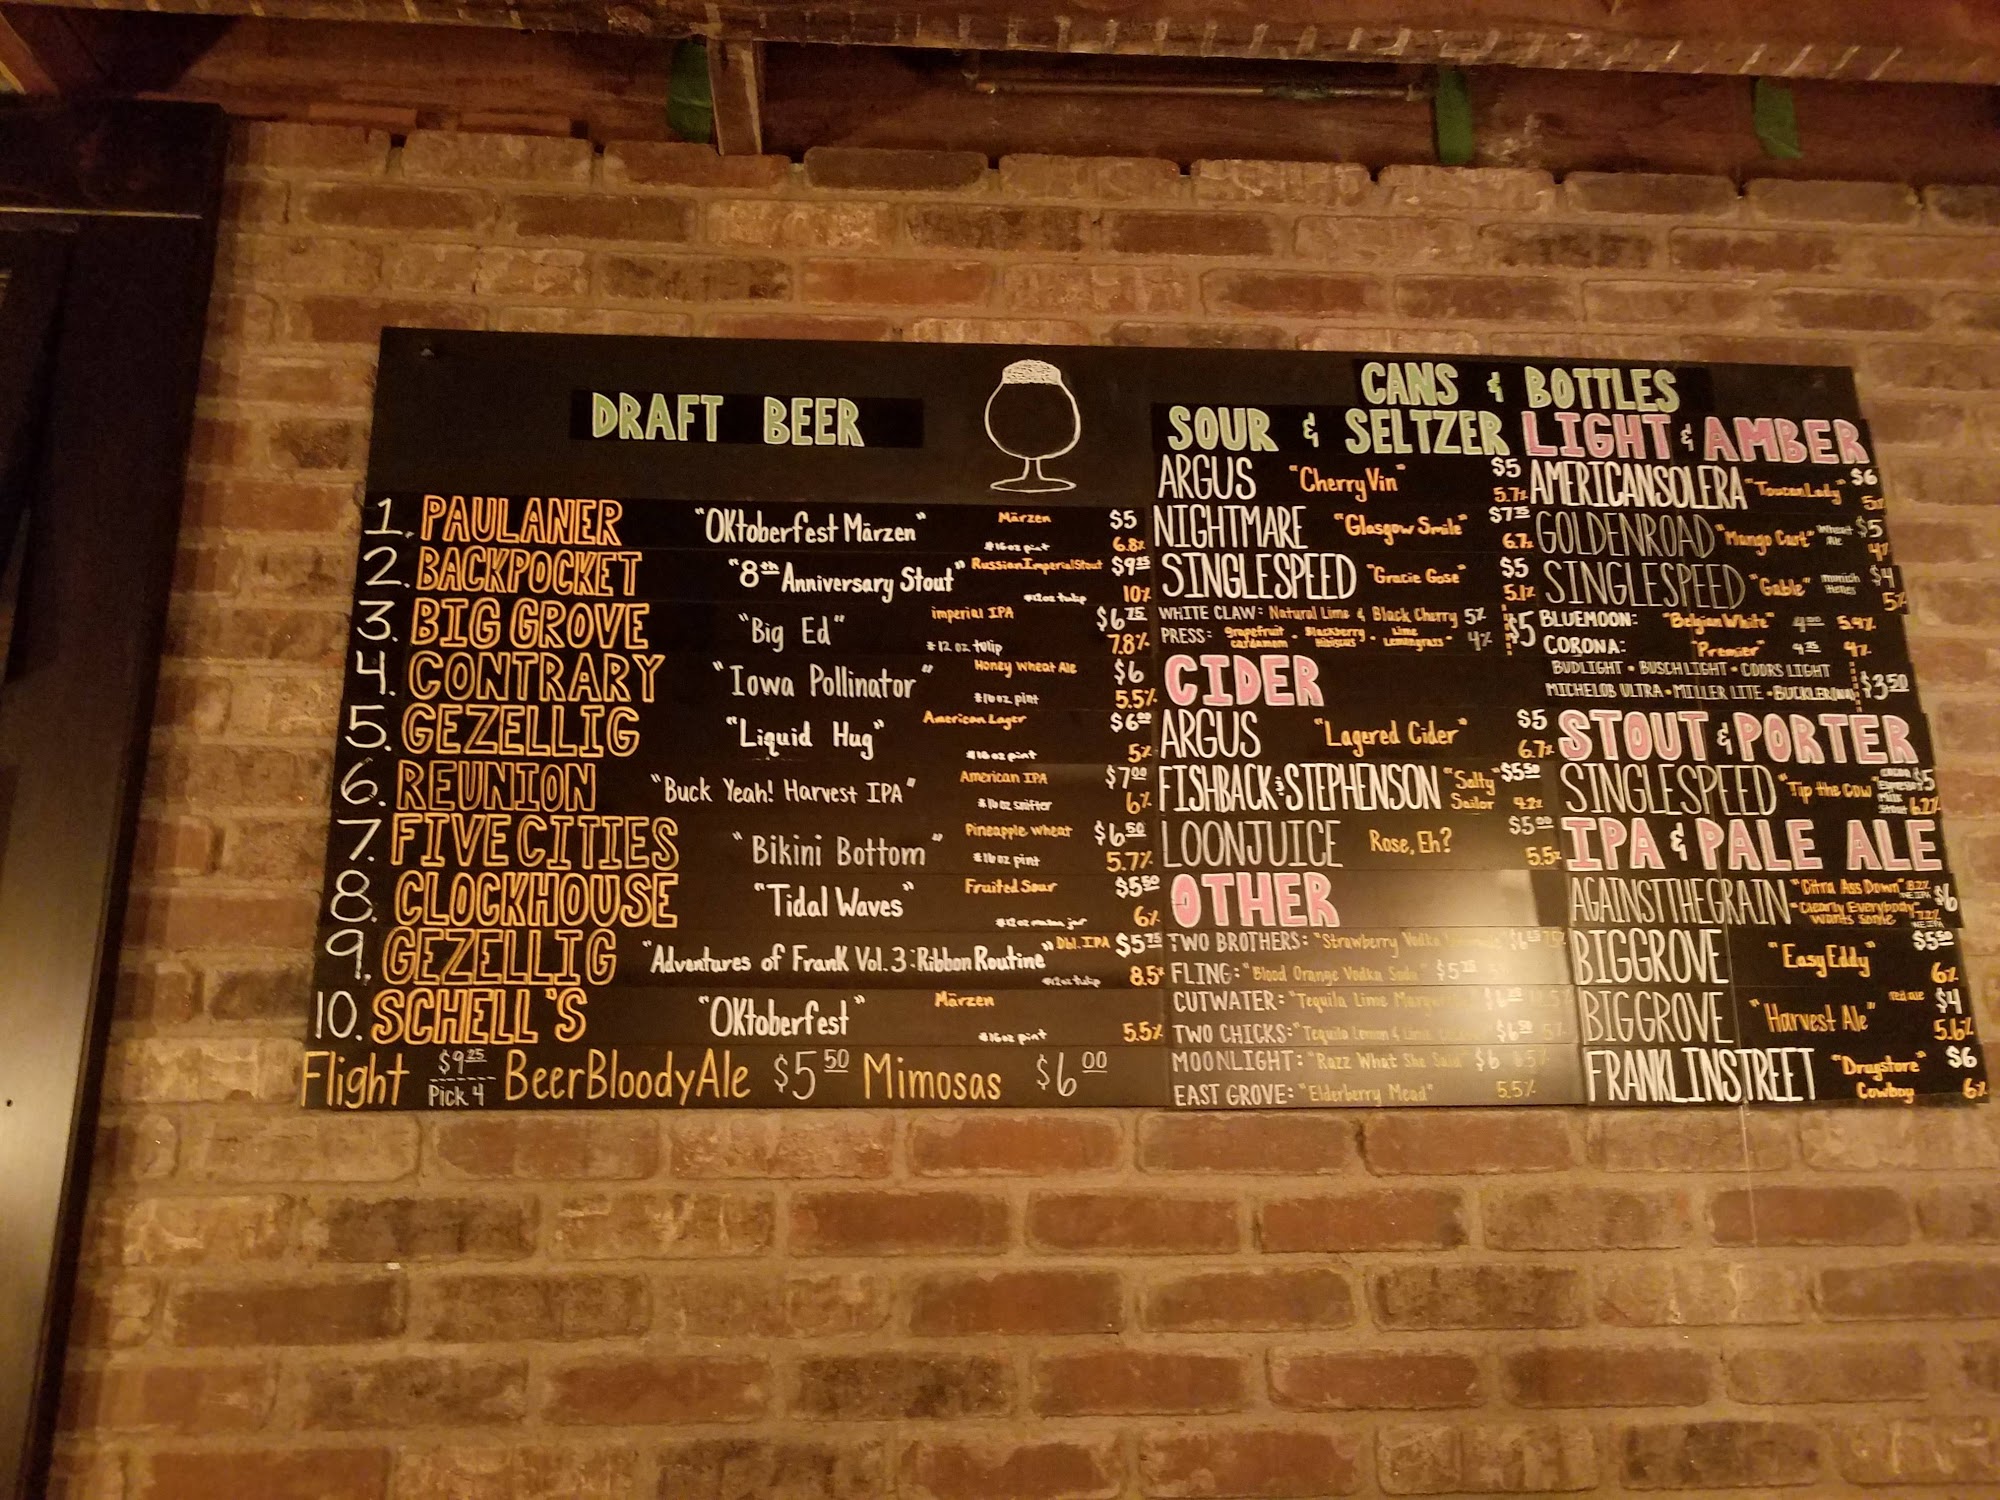 DRAFT BEER
1. PAULANER "OKtoberfest Märzen" Märzen *16oz pint $5 6.8%
2. BACKPOCKET "8th Anniversary Stout" Russian Imperial Stout *12oz tulip 10%
3. BIG GROVE "Big Ed" imperial IPA *12 oz tulip $6.75 7.8%
4. CONTRARY "Iowa Pollinator" Honey Wheat Ale *16oz pint $6 5.5%
5. GEZELLIG "Liquid Hug" American Lager *16oz pint $6.00 5%
6. REUNION "Buck Yeah! Harvest IPA" American IPA *16oz snifter $7.00 6%
7. FIVE CITIES "Bikini Bottom" Pineapple Wheat *16oz pint $6.50 5.7%
8. CLOCKHOUSE "Tidal Waves" Fruited Sour *12oz mason jar $5.50 6%
9. GEZELLIG "Adventures of Frank Vol. 3: Ribbon Routine" Dbl. IPA *12oz tulip $5.75 8.5%
10. SCHELL'S "OKtoberfest" Märzen *16oz pint 5.5%
Flight $9.25 Pick 4 BeerBloodyAle $5.50 Mimosas $6.00
CANS & BOTTLES
SOUR & SELTZER
ARGUS "Cherry Vin" $5 5.7%
NIGHTMARE "Glasgow Smile" 6.7%
SINGLESPEED "Gracie Gose" $5 5.1%
WHITE CLAW: Natural Lime & Black Cherry 5%
PRESS: grapefruit cardamom - Blackberry Hibiscus - Lime Lemongrass - 4% $5
CIDER
ARGUS "Lagered Cider" $5 6.7%
FISHBACK & STEPHENSON "Salty Sailor" $5.50 4.2%
LOONJUICE Rose, Eh? $5.00 5.5%
OTHER
TWO BROTHERS: "Strawberry Vodka
FLING: "Blood Orange Vodka Soda"
CUTWATER: "Tequila Lime
TWO CHICKS: "Tequila Lemon & Lime $6.50 5%
MOONLIGHT: "Razz What She Said" $6 8.5%
EAST GROVE: "Elderberry Mead" 5.5%
LIGHT & AMBER
AMERICANSOLERA "Toucan Lady" $6 5%
GOLDENROAD "Mango Cart" Wheat Ale $5 4%
SINGLESPEED "Gable" Munich Helles $4 5%
BLUEMOON: "Belgian White" 4.00 5.4%
CORONA: "Premier" 4.25 4%
BUDLIGHT • BUSCH LIGHT • COORS LIGHT
MICHELOB ULTRA • MILLER LITE • BUCKLER(NA) $3.50
STOUT & PORTER
SINGLESPEED "Tip the Cow" cocoa Espresso Milk Stout $5 6.2%
IPA & PALE ALE
AGAINSTTHEGRAIN "Citra Ass Down" 8.2% NE IPA "Clearly Everybody wants some" 7.2% NE IPA $6
BIGGROVE "Easy Eddy" $5.50 6%
BIGGROVE "Harvest Ale" red ale $4 5.6%
FRANKLINSTREET "Drugstore" Cowboy $6 6%